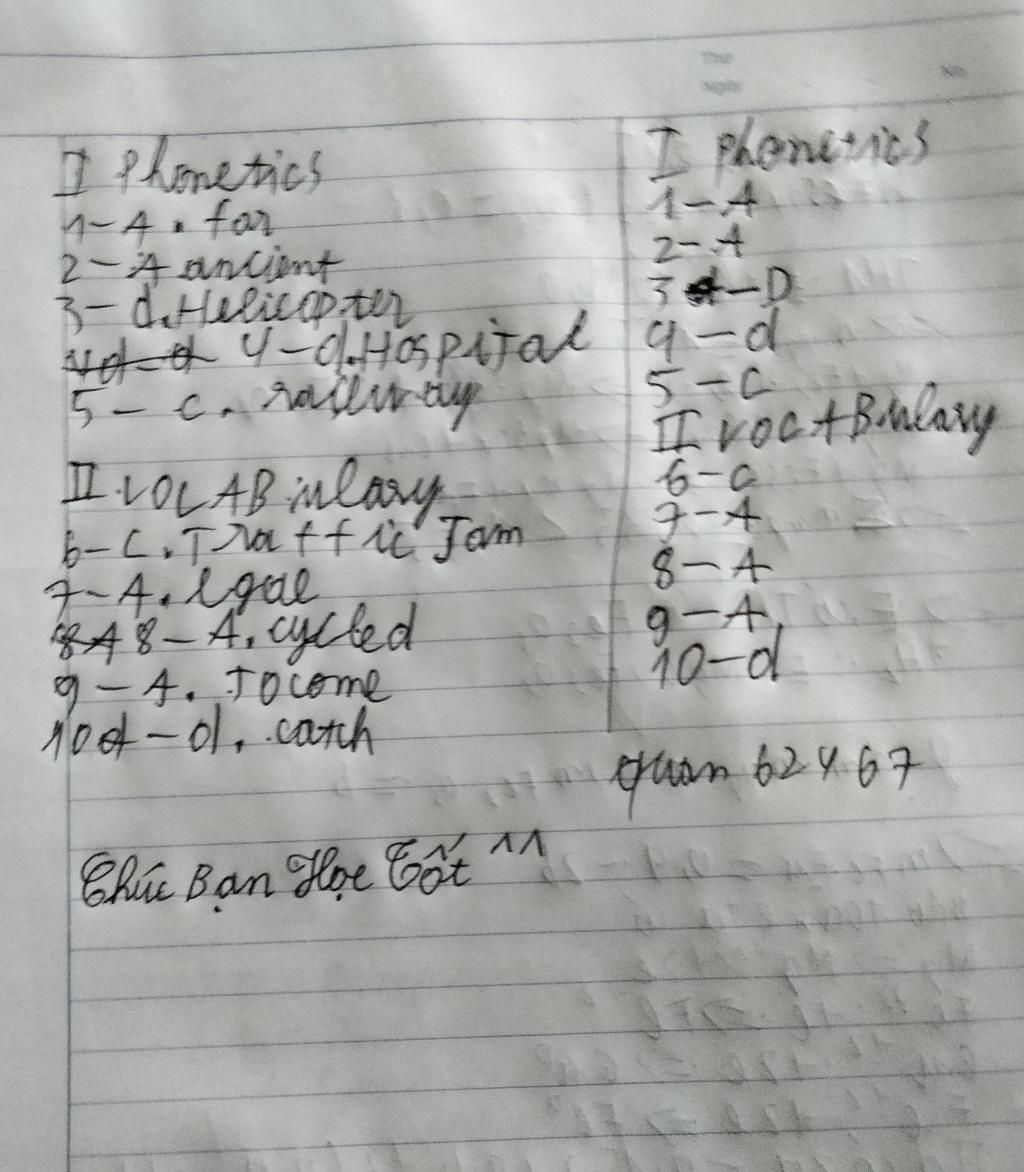 I Phonetics
1-A. far
2-A ancient
3-d. Helicopter
4-d. Hospital
5-c. railway
II. VOCABulary
6-C. Traffic Jam
7-A. legal
8-A. cycled
9-A. To come
10d-d. catch
I phonetics
1-A
2-A
3-D
4-d
5-C
II VOCABulary
6-C
7-A
8-A
9-A
10-d
quan 62467
Chúc Bạn Học Tốt ^^